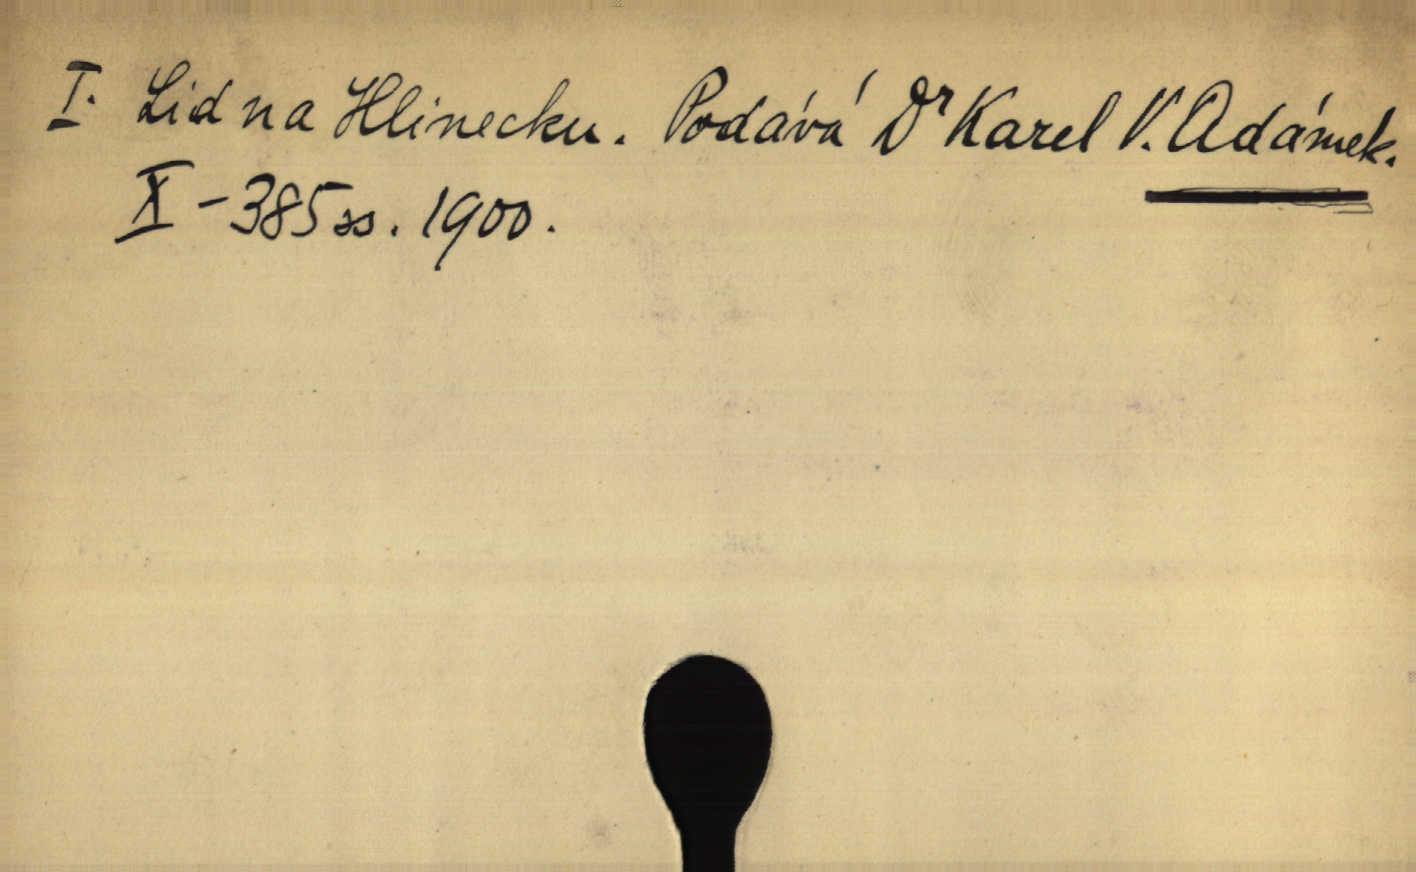 I. Lid na Hlinecku. Podává Dr Karel V. Adámek.
X - 385 ss. 1900.